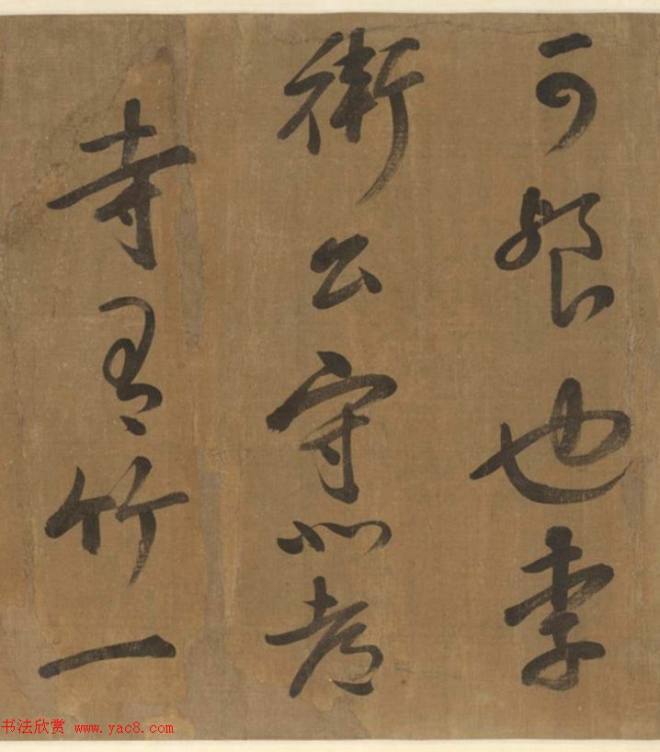 可餐也李
衛公守北都
寺有竹一
书法欣赏 www.yac8.com